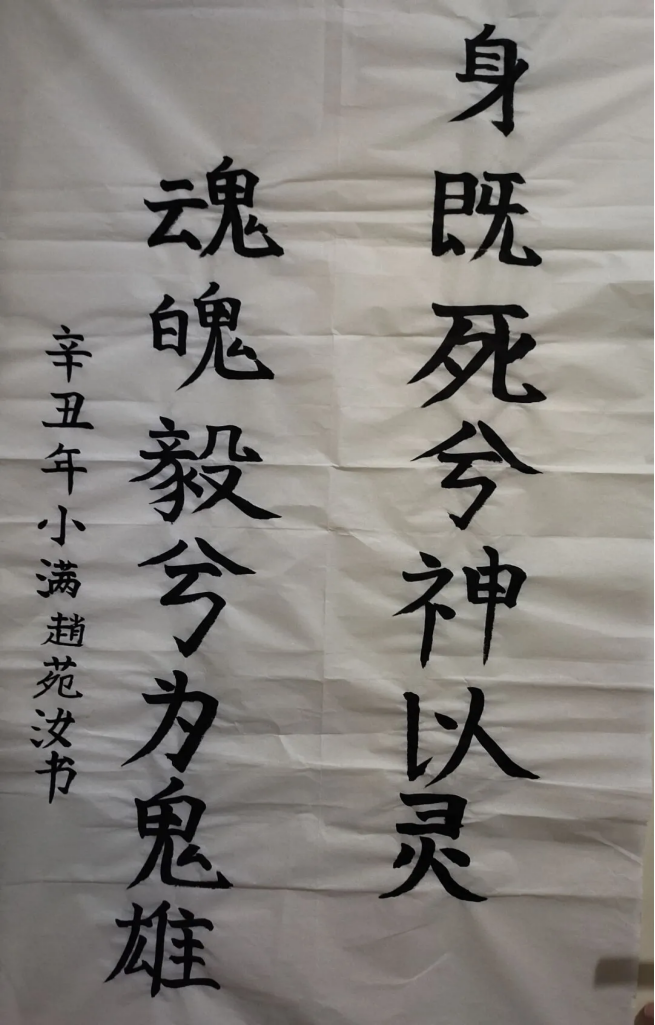 身既死兮神以灵
魂魄毅兮为鬼雄
辛丑年小满趙苑汝书